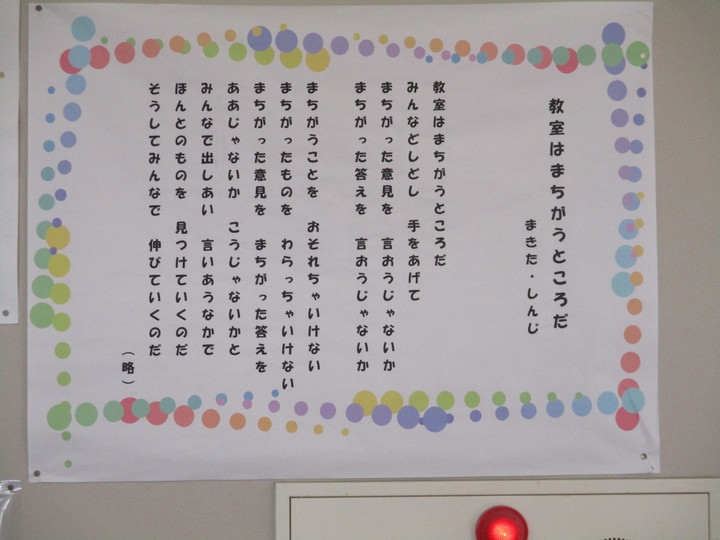 教室はまちがうところだ
まきた・しんじ
教室はまちがうところだ
みんなどしどし　手をあげて
まちがった意見を　言おうじゃないか
まちがった答えを　言おうじゃないか
まちがうことを　おそれちゃいけない
まちがったものを　わらっちゃいけない
まちがった意見を　まちがった答えを
ああじゃないか　こうじゃないかと
みんなで出しあい　言いあうなかで
ほんとのものを　見つけていくのだ
そうしてみんなで　伸びていくのだ
（略）